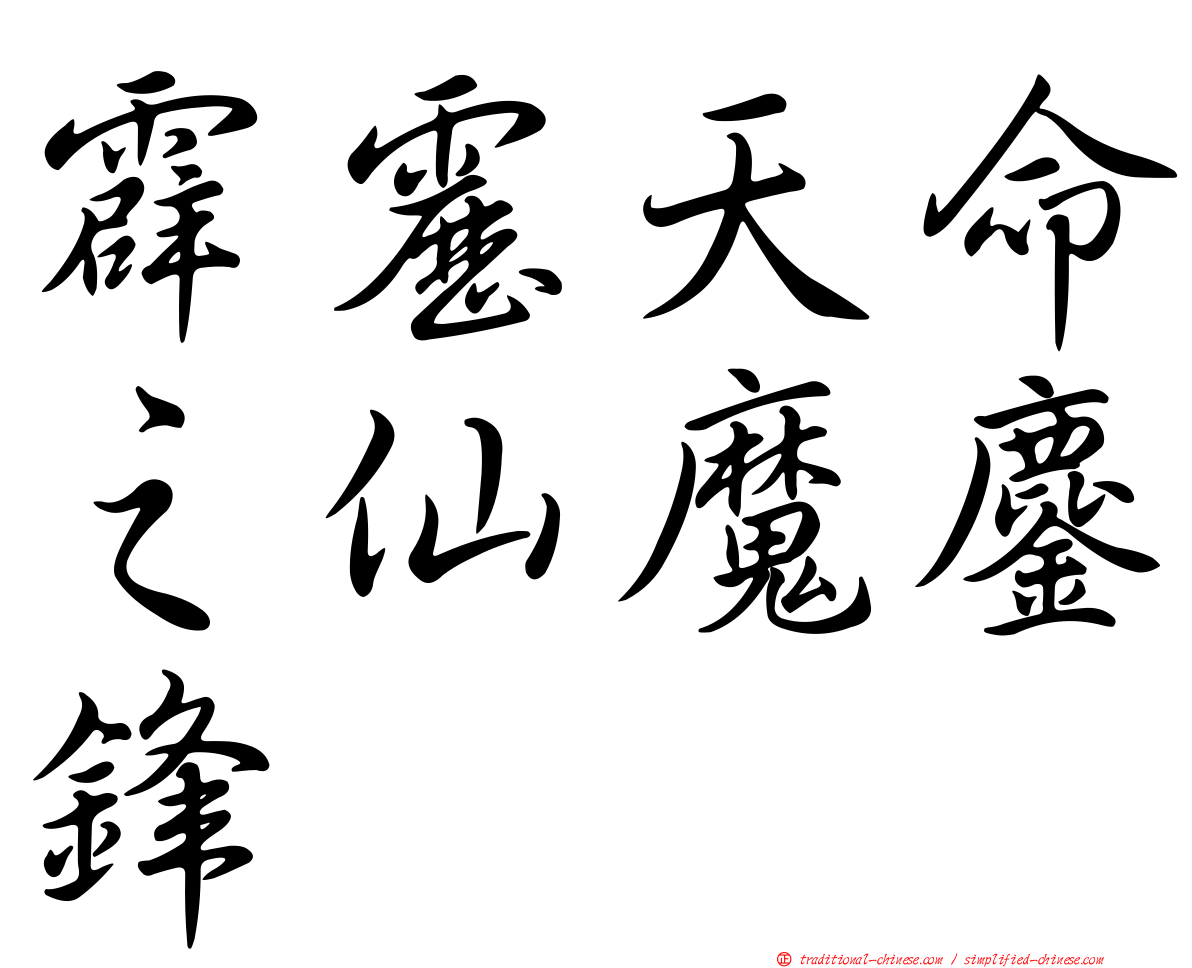 霹靂天命
之仙魔鏖
鋒
正 traditional-chinese.com / simplified-chinese.com